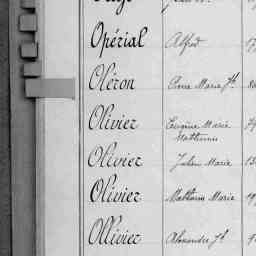 Opérial Alfred
Oléron Pierre Marie Jh.
Olivier Eugène Marie
Mathurin
Olivier Julien Marie
Olivier Mathurin Marie
Ollivier Alexandre Jh.